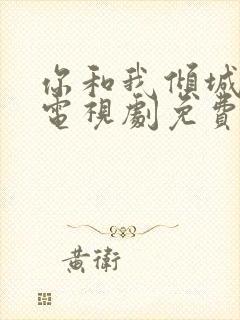 你和我傾城
電視劇免費
黃衛